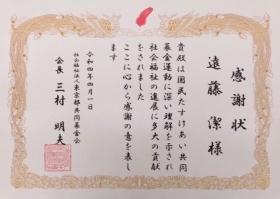 感謝状
遠藤 潔 様
貴殿は国民たすけあい共同
募金運動に深い理解を示され
社会福祉の進展に多大の貢献
をされました
ここに心から感謝の意を表し
ます
令和四年四月一日
社会福祉法人東京都共同募金会
会長 三村 明夫